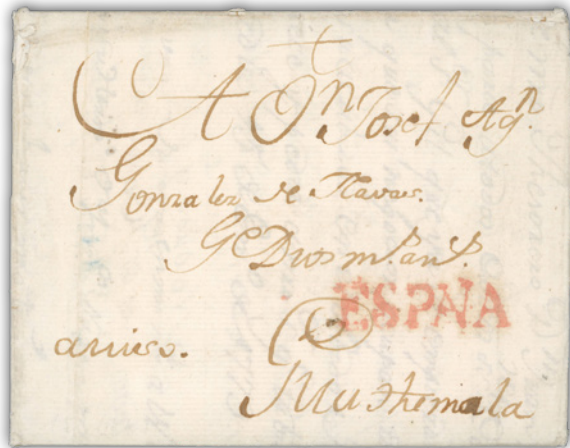 A Dn Josef Agn.
Gonzalez de Navas.
Ge Dios ms. as.
ESPAÑA
aviso.
Guathemala